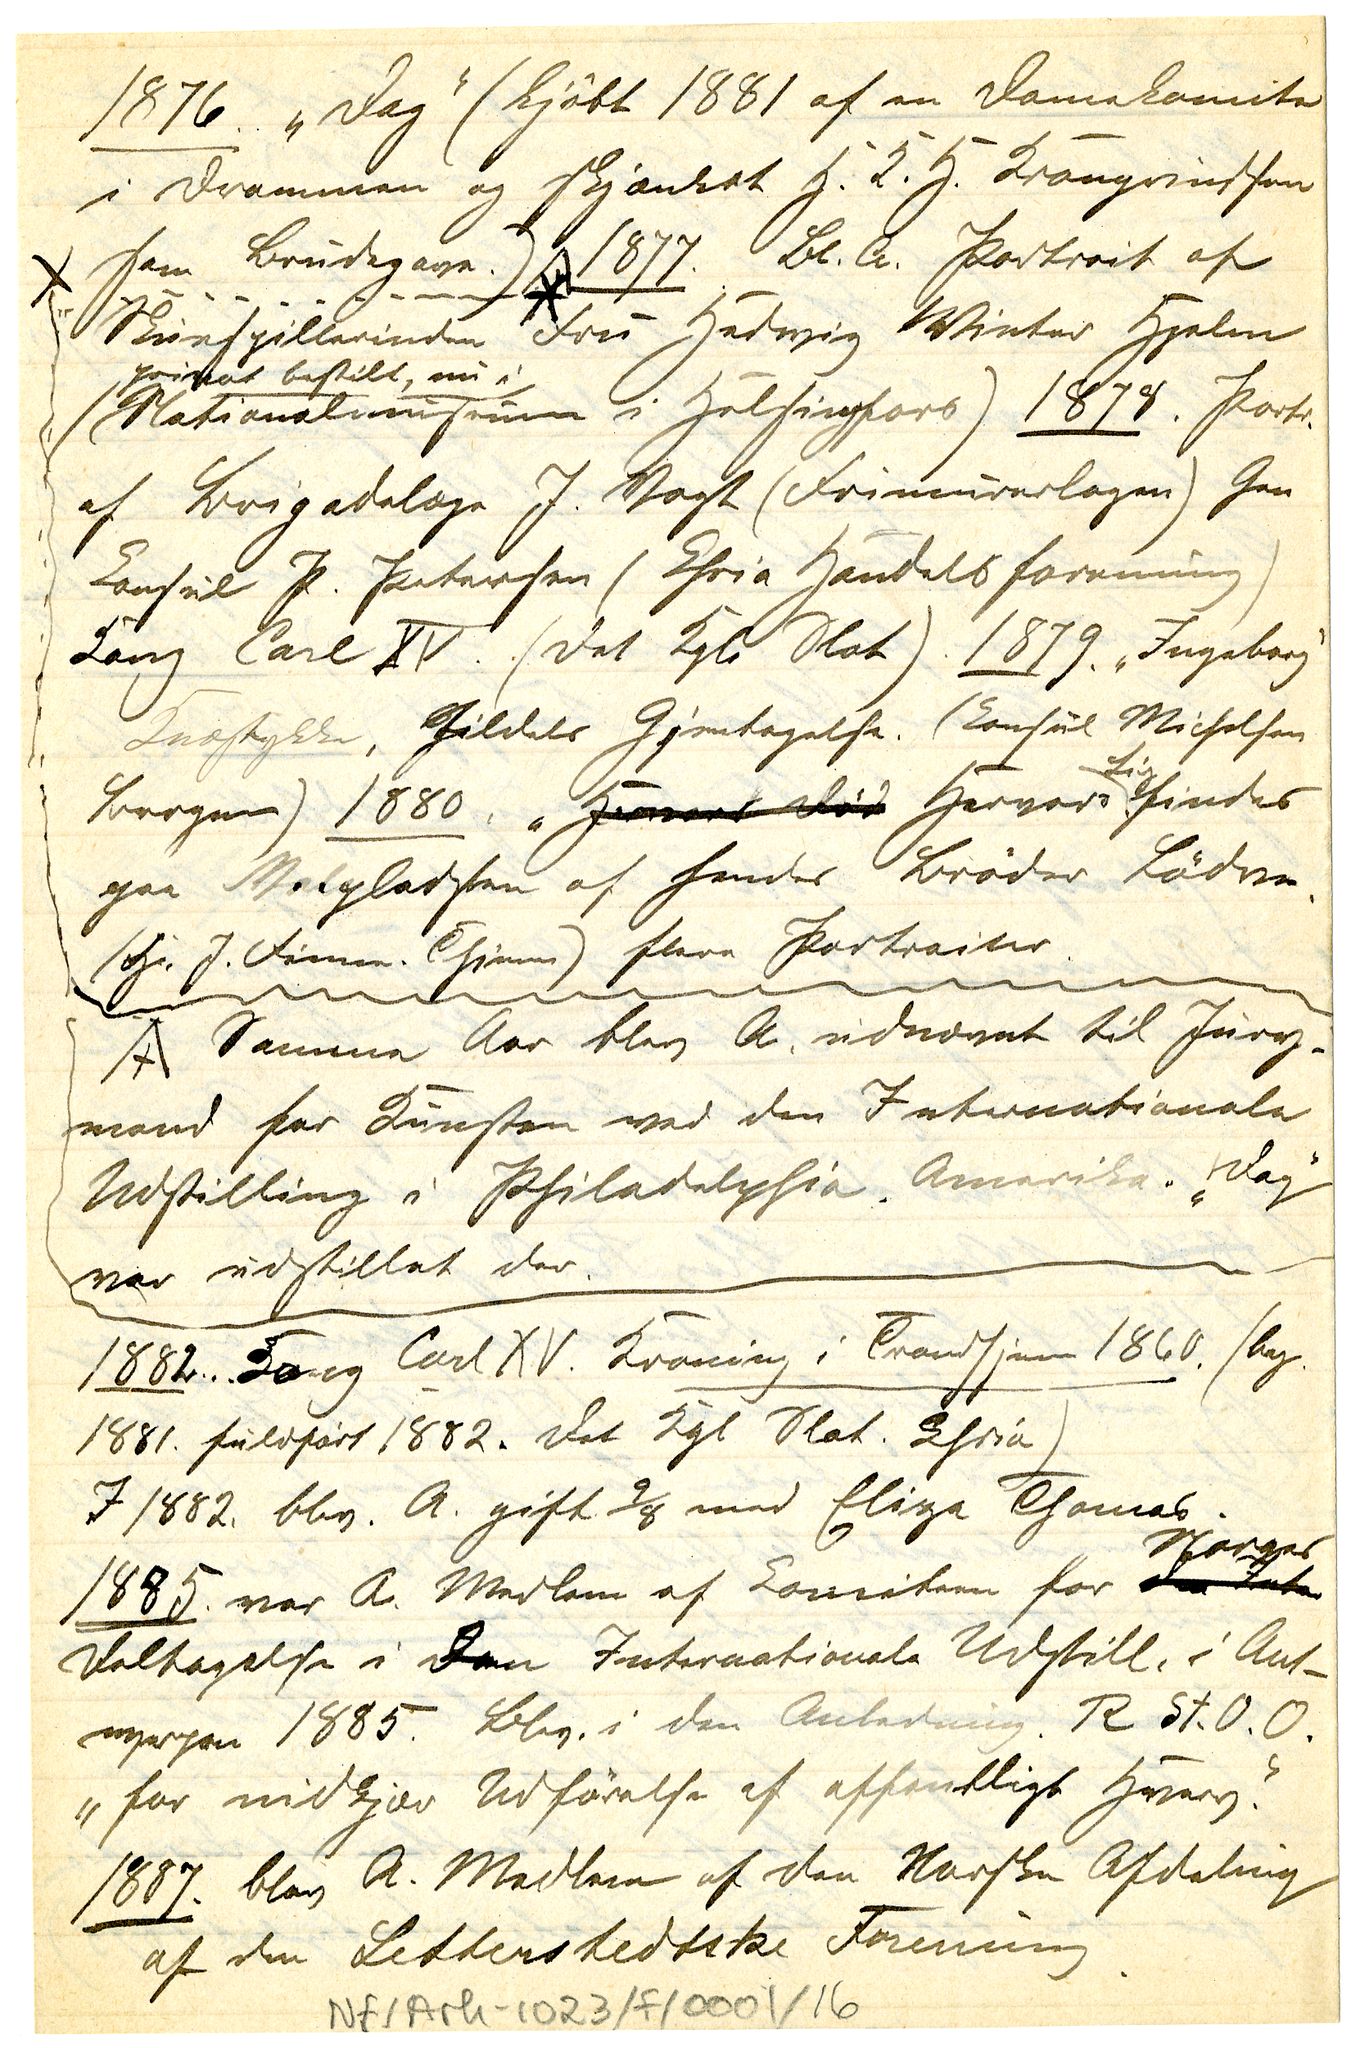 1876. „Dag“ (kjöbt 1881 af en Damekomite
i Drammen og skjænket H. K. H. Kronprindsen
som Brudegave.) A 1877. Bl. A. Portrait af
Skuespillerinden Fru Hedvig Winter Hjelm
privat bestilt, nu i
(Nationalmuseum i Helsingfors) 1878. Portr.
af Brigadelæge J. Vogt (Frimurerlogen) Gen
Konsul P. Petersen (Chria Handels forening)
Kong Carl XV. (Det Kgl. Slot). 1879. „Ingeborg“
Knæstykke, Gildels Gjentagelse. (Konsul Michelsen
Bergen) 1880. „ Hervors Död Hervor findes
sig
paa Valpladsen af hendes Bröder Lödver.
J. Finne. Thjem) flere Portraiter.
A Samme Aar blev A. udnævnt til Jury-
mand for Kunsten ved den Internationale
Udstilling i Philadelphia. Amerika. „Dag“
var udstillet der.
1882. Kong Carl XV. Kroning i Trondhjem 1860. (beg.
1881. fuldfört 1882. Det Kgl Slot. Chria)
I 1882. blev. A. gift 9/8 med Eliza Thomas.
1885. var A. Medlem af Komiteen for den Inter
Norges
Deltagelse i den Internationale Udstill. i Ant-
werpen 1885. Blev. i den Anledning. R St. O. O.
„for nidkjær Udförelse af offentligt Hverv“.
1887. blev A. Medlem af den Norske Afdeling
af den Letterstedtske Forening.
NF/Ark-1023/F/0001/16